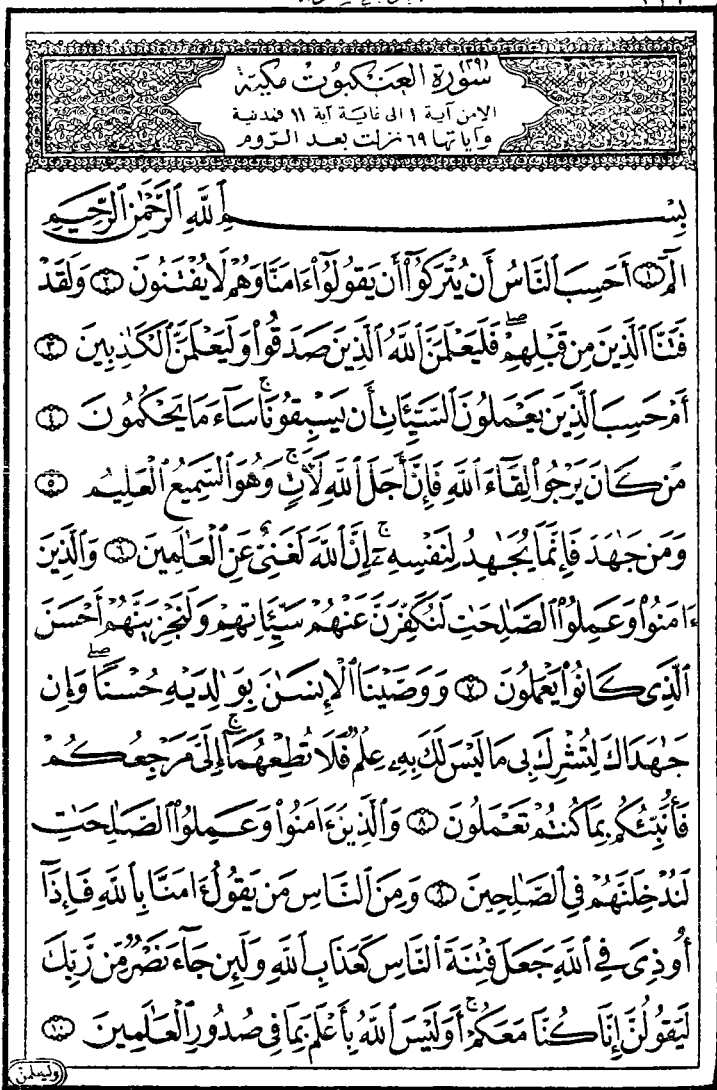 (٢٩) سورة العنكبوت مكية
الا من آية ١ الى غاية آية ١١ فمدنية
وآياتها ٦٩ نزلت بعد الروم
بِسْمِ ٱللَّهِ ٱلرَّحْمَٰنِ ٱلرَّحِيمِ
الٓمٓ ١ أَحَسِبَ ٱلنَّاسُ أَن يُتْرَكُوٓا۟ أَن يَقُولُوٓا۟ ءَامَنَّا وَهُمْ لَا يُفْتَنُونَ ٢ وَلَقَدْ
فَتَنَّا ٱلَّذِينَ مِن قَبْلِهِمْ ۖ فَلَيَعْلَمَنَّ ٱللَّهُ ٱلَّذِينَ صَدَقُوا۟ وَلَيَعْلَمَنَّ ٱلْكَٰذِبِينَ ٣
أَمْ حَسِبَ ٱلَّذِينَ يَعْمَلُونَ ٱلسَّيِّـَٔاتِ أَن يَسْبِقُونَا ۚ سَآءَ مَا يَحْكُمُونَ ٤
مَن كَانَ يَرْجُوا۟ لِقَآءَ ٱللَّهِ فَإِنَّ أَجَلَ ٱللَّهِ لَـَٔاتٍ ۚ وَهُوَ ٱلسَّمِيعُ ٱلْعَلِيمُ ٥
وَمَن جَٰهَدَ فَإِنَّمَا يُجَٰهِدُ لِنَفْسِهِۦٓ ۚ إِنَّ ٱللَّهَ لَغَنِىٌّ عَنِ ٱلْعَٰلَمِينَ ٦ وَٱلَّذِينَ
ءَامَنُوا۟ وَعَمِلُوا۟ ٱلصَّٰلِحَٰتِ لَنُكَفِّرَنَّ عَنْهُمْ سَيِّـَٔاتِهِمْ وَلَنَجْزِيَنَّهُمْ أَحْسَنَ
ٱلَّذِى كَانُوا۟ يَعْمَلُونَ ٧ وَوَصَّيْنَا ٱلْإِنسَٰنَ بِوَٰلِدَيْهِ حُسْنًا ۖ وَإِن
جَٰهَدَاكَ لِتُشْرِكَ بِى مَا لَيْسَ لَكَ بِهِۦ عِلْمٌ فَلَا تُطِعْهُمَآ ۚ إِلَىَّ مَرْجِعُكُمْ
فَأُنَبِّئُكُم بِمَا كُنتُمْ تَعْمَلُونَ ٨ وَٱلَّذِينَ ءَامَنُوا۟ وَعَمِلُوا۟ ٱلصَّٰلِحَٰتِ
لَنُدْخِلَنَّهُمْ فِى ٱلصَّٰلِحِينَ ٩ وَمِنَ ٱلنَّاسِ مَن يَقُولُ ءَامَنَّا بِٱللَّهِ فَإِذَآ
أُوذِىَ فِى ٱللَّهِ جَعَلَ فِتْنَةَ ٱلنَّاسِ كَعَذَابِ ٱللَّهِ وَلَئِن جَآءَ نَصْرٌ مِّن رَّبِّكَ
لَيَقُولُنَّ إِنَّا كُنَّا مَعَكُمْ ۚ أَوَلَيْسَ ٱللَّهُ بِأَعْلَمَ بِمَا فِى صُدُورِ ٱلْعَٰلَمِينَ ١٠
وليعلمن